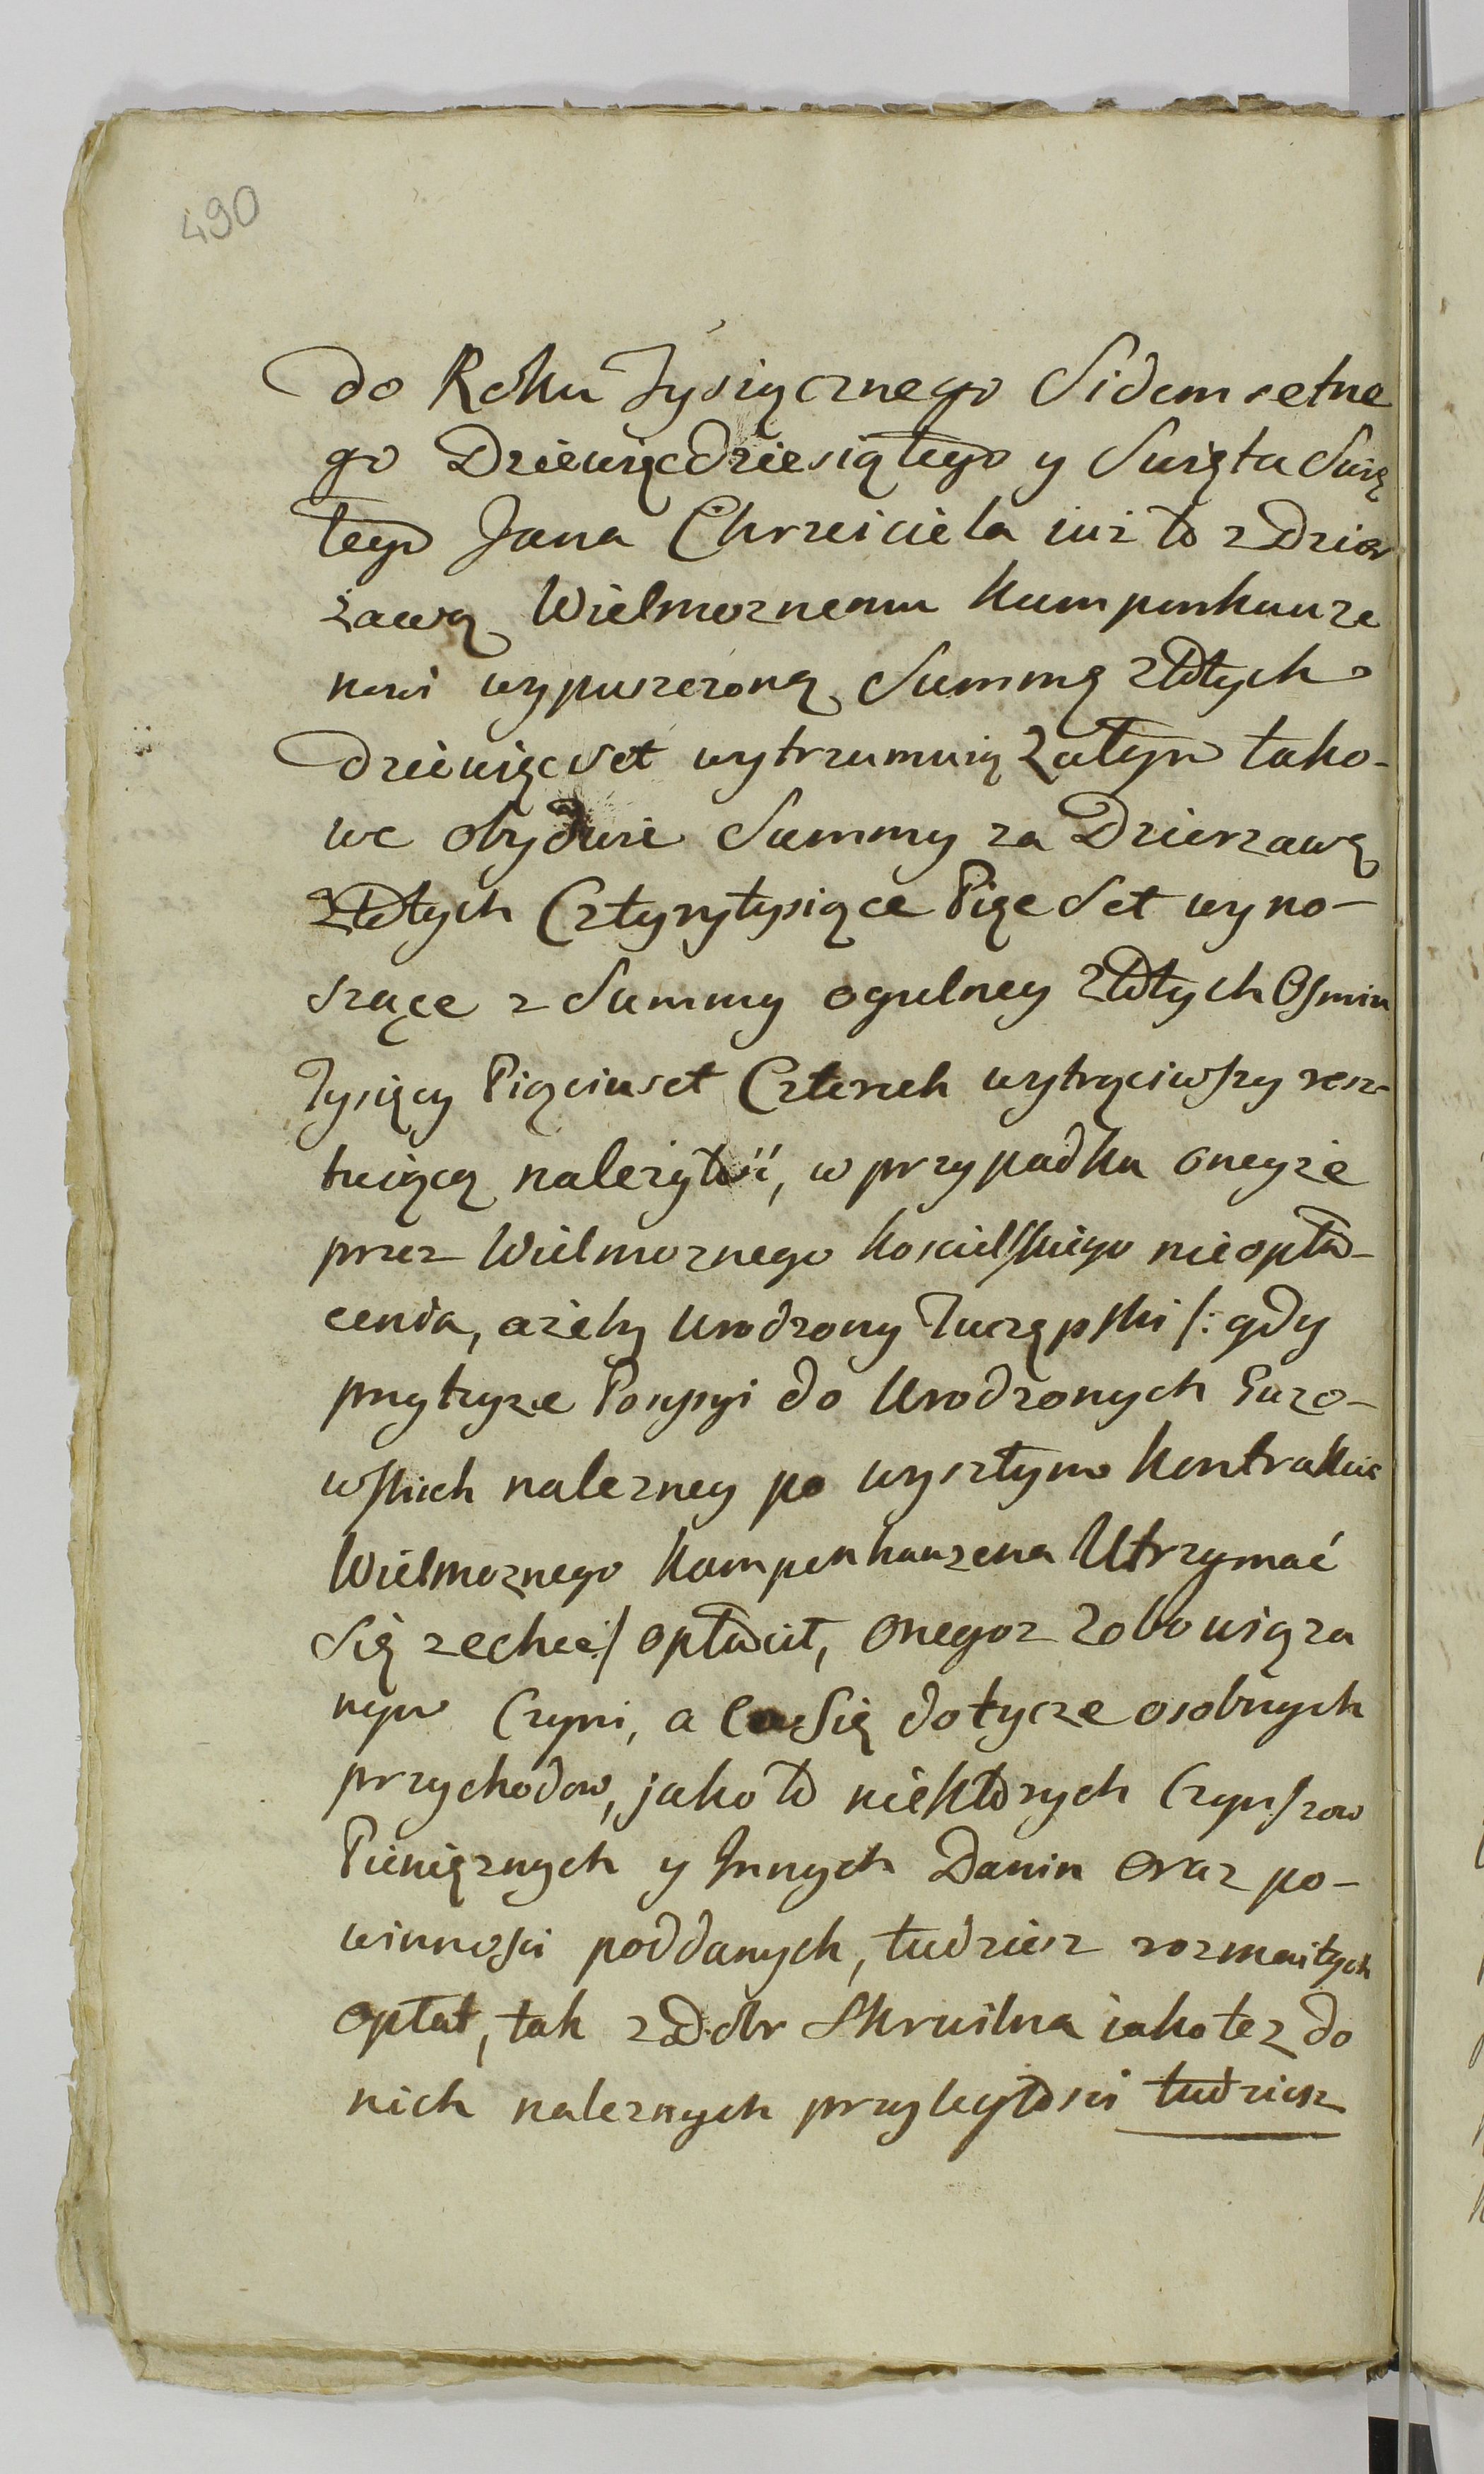 490
do Roku Tysiącznego Sidemsetne
go Dziewięcdziesiątego y Święta Świę
tego Jana Chrzciciela iuż to z Dzier
żawą Wielmoznemu Kampenhauze
nowi wypuszczoną Summę złotych
Dziewięcset wytrzumuią Zatym tako-
we obydwie Summy za Dzierzawę
złotych Cztyrytysiące Pięcset wyno-
szące z Summy ogulney złotych Osmiu
Tysięcy Pięciuset Czterech wytrąciwszy resz-
tuiącą należytość, w przypadku oneyże
przez Wielmoznego Koscielskiego nieopła-
cenia, ażeby Urodzony Turzępski /: gdy
przyteyze Possessyi do Urodzonych Guzo-
wskich nalezney po wyszłym Kontrakcie
Wielmoznego Kampenhauzena Utrzymać
się zechce :/ opłacił, onegoz zobowiąza
nym Czyni, a Co się dotycze osobnych
przychodow, jako to niektorych Czynszow
Pieniężnych y Innych Danin oraz po-
winnosci poddanych, tudziesz rozmaitych
opłat, tak z Dobr Skrwilna iako też do
nich naleznych przyległosci tudziesz